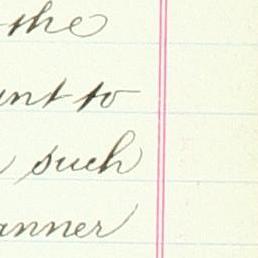 the
unt to
such
anner